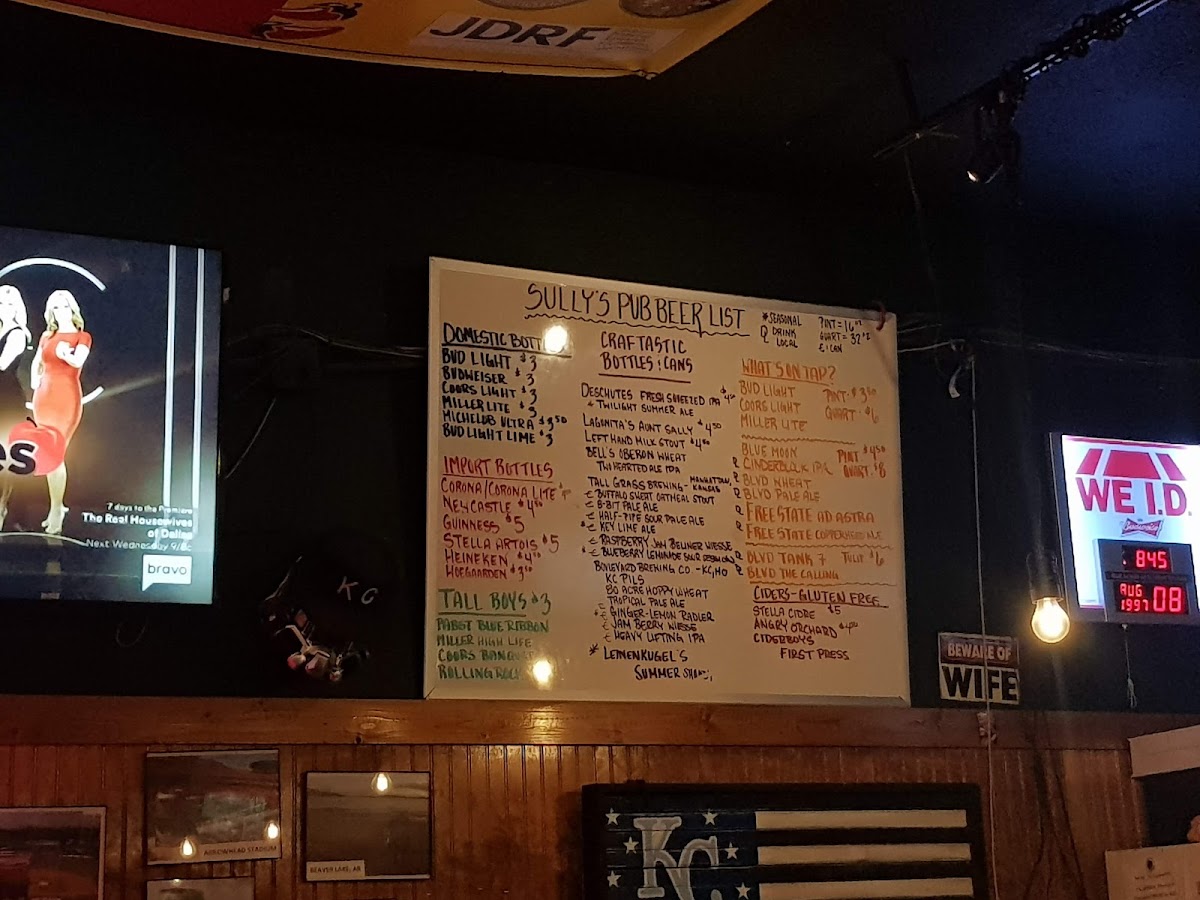 JDRF
es
7 days to the Premiere
The Real Housewives
of Dallas
Next Wednesday 9/8c
bravo
KC
SULLY'S PUB BEER LIST
*SEASONAL
Q DRINK
LOCAL
PINT = 16oz
QUART = 32oz
€ | CAN
DOMESTIC BOTT
BUD LIGHT $3
BUDWEISER $3
COORS LIGHT $3
MILLER LITE $3
MICHELOB ULTRA $3.50
BUD LIGHT LIME $3
IMPORT BOTTLES
CORONA/CORONA LITE
NEWCASTLE $4.50
GUINNESS $5
STELLA ARTOIS $5
HEINEKEN $4.50
HOEGAARDEN $3.50
TALL BOYS $3
PABST BLUE RIBBON
MILLER HIGH LIFE
COORS BANQUET
ROLLING ROCK
CRAFTASTIC
BOTTLES & CANS
DESCHUTES FRESH SQUEEZED IPA $4.50
* TWILIGHT SUMMER ALE
LAGUNITA'S AUNT SALLY $4.50
LEFT HAND MILK STOUT $4.50
BELL'S OBERON WHEAT
TWO HEARTED ALE IPA
TALL GRASS BREWING - MANHATTAN, KANSAS
€ BUFFALO SWEAT OATMEAL STOUT
€ 8-BIT PALE ALE
€ HALF-PIPE SOUR PALE ALE
* € KEY LIME ALE
€ RASPBERRY JAM BERLINER WEISSE
* € BLUEBERRY LEMONADE SOUR SESSION
BOULEVARD BREWING CO. - KC, MO
KC PILS
80 ACRE HOPPY WHEAT
TROPICAL PALE ALE
* € GINGER-LEMON RADLER
€ JAM BERRY WEISSE
€ HEAVY LIFTING IPA
* LEINENKUGEL'S
SUMMER SHANDY
WHAT'S ON TAP?
BUD LIGHT
COORS LIGHT
MILLER LITE
PINT - $3.50
QUART - $6
BLUE MOON
Q CINDERBLOCK IPA
Q BLVD WHEAT
Q BLVD PALE ALE
PINT $4.50
QUART - $8
Q FREESTATE AD ASTRA
Q FREESTATE COPPERHEAD ALE
Q BLVD TANK 7 TULIP $6
Q BLVD THE CALLING
CIDERS - GLUTEN FREE
STELLA CIDRE $5
ANGRY ORCHARD $4.50
CIDERBOYS
FIRST PRESS
WE I.D.
Budweiser
8:45
AUG
1997 08
BEWARE OF
WIFE
ARROWHEAD STADIUM
BEAVER LAKE, AR
KC